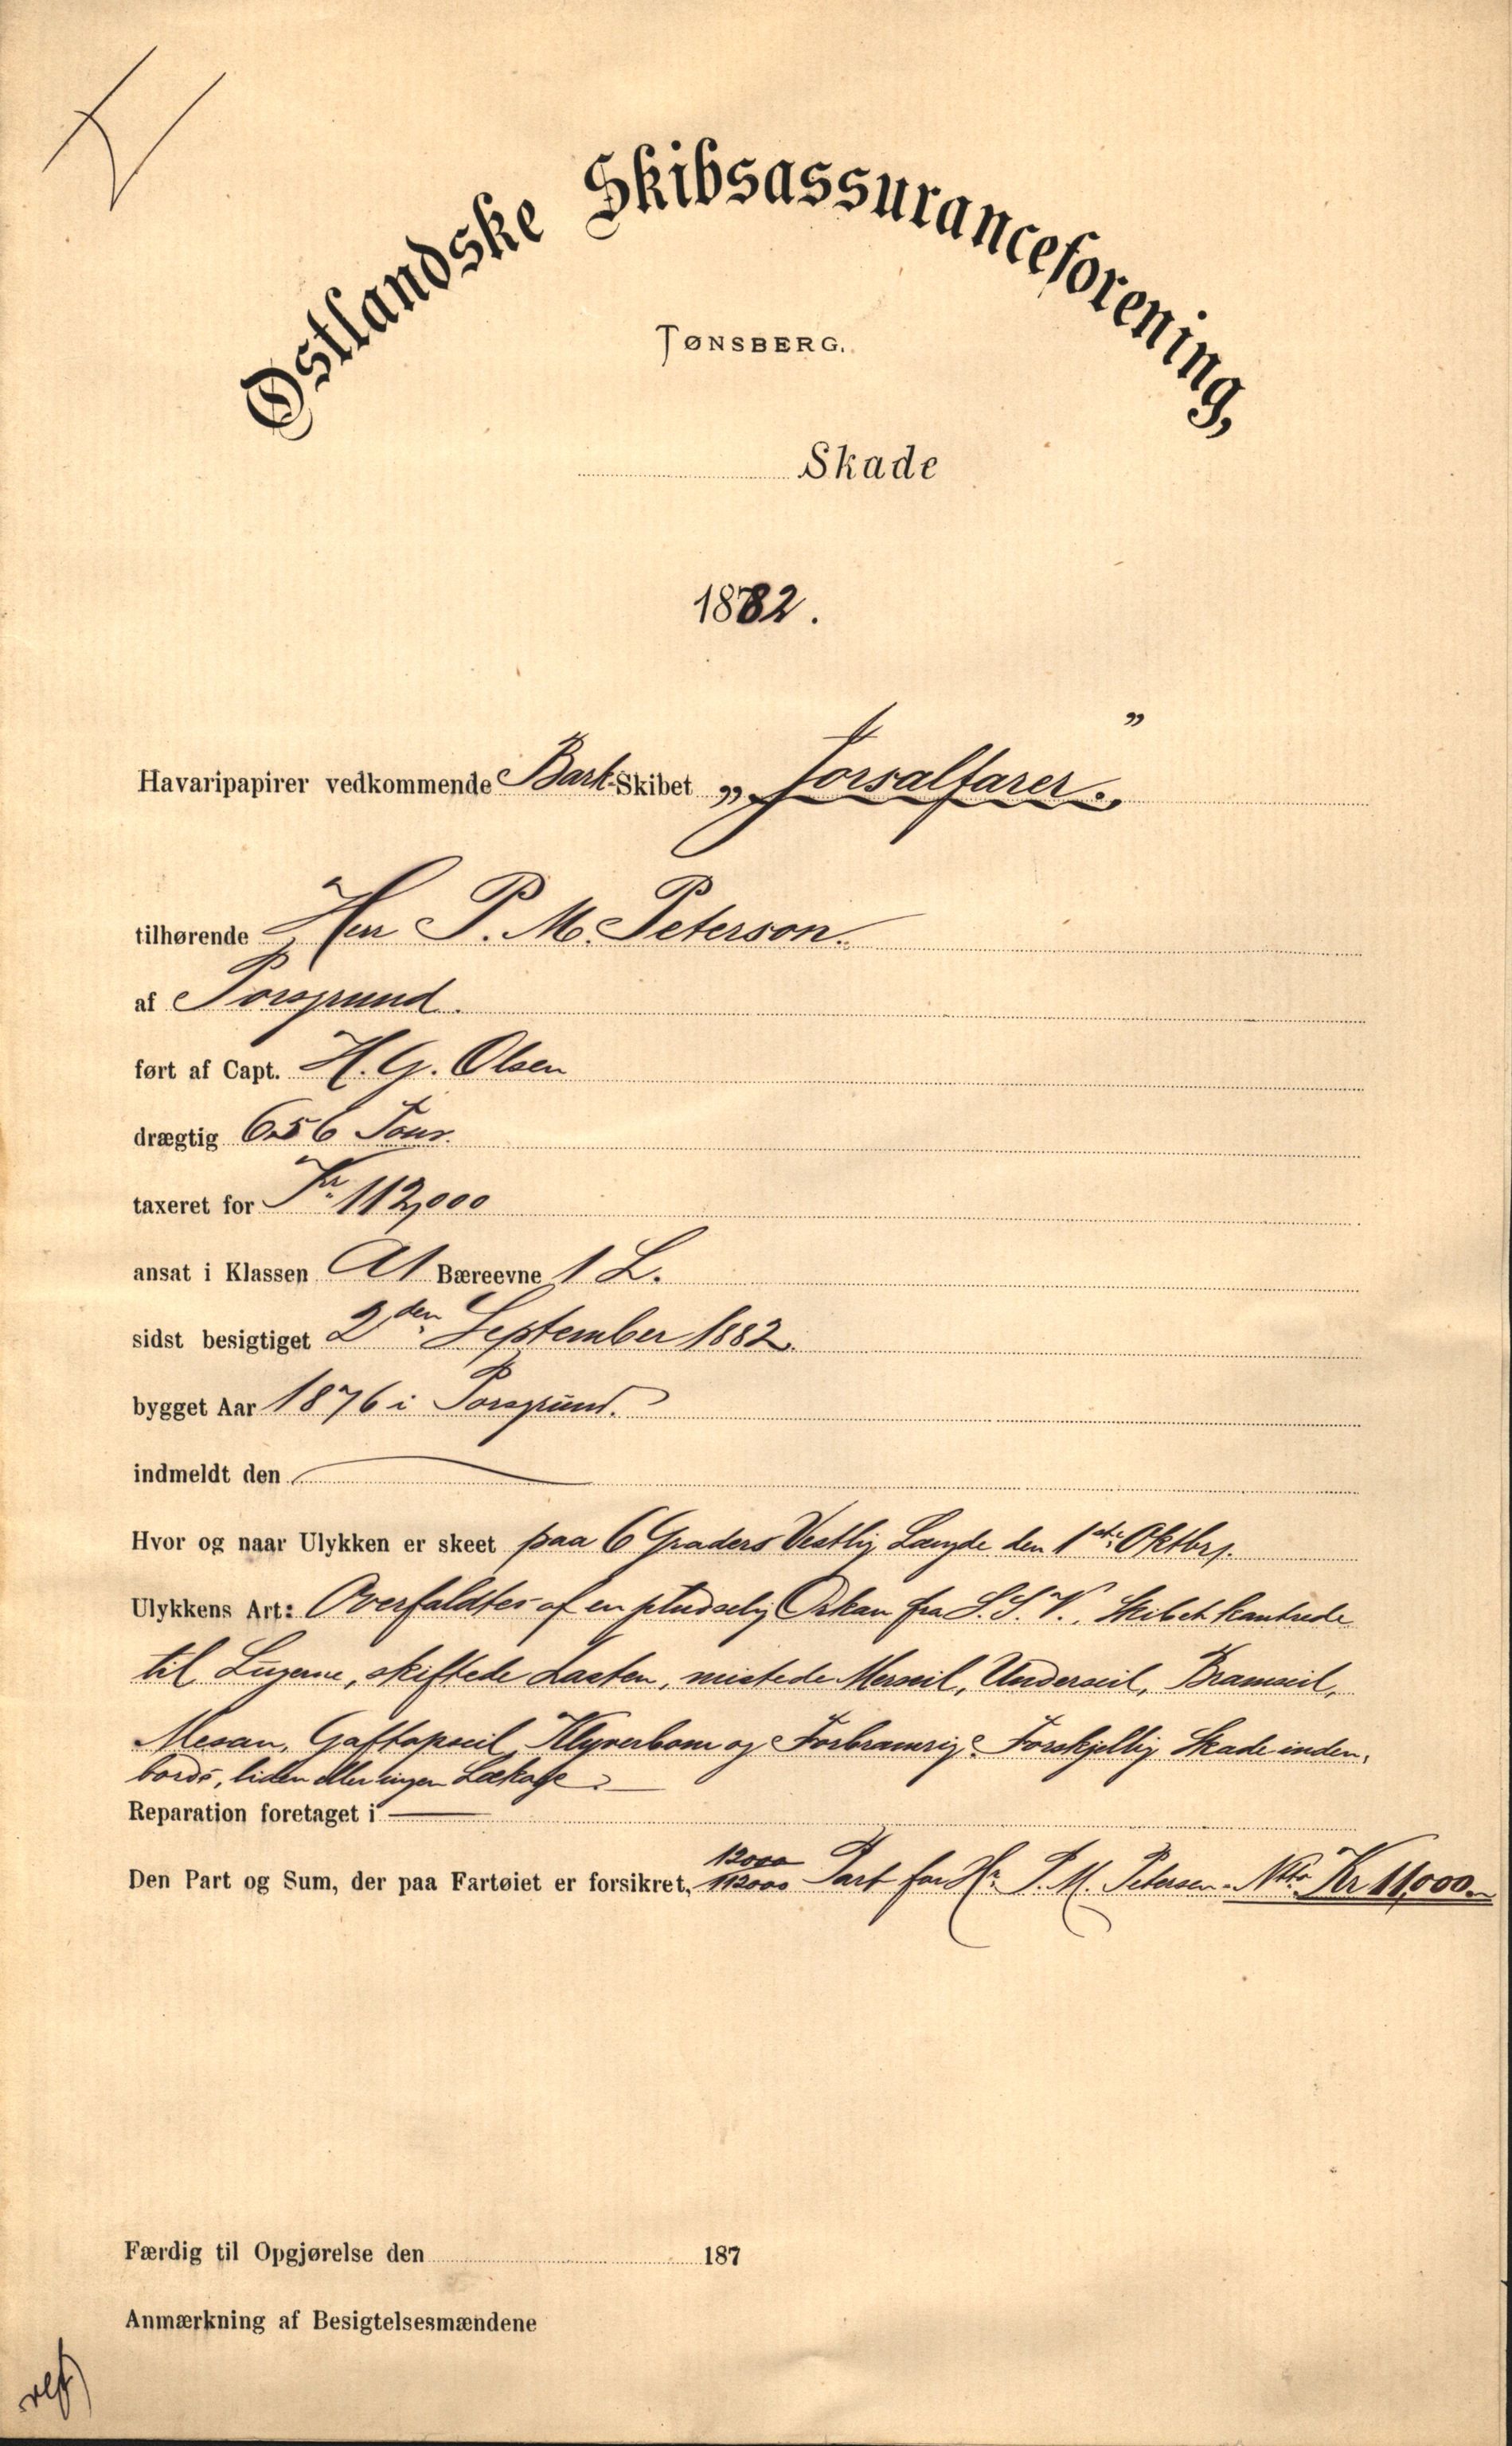 Østlandske Skibsassuranceforening,
TØNSBERG.
Skade
1882.
Havaripapirer vedkommende Bark-Skibet „Jorsalfarer.”
tilhørende Herr P. M. Peterson.
af Porsgrund.
ført af Capt. H. G. Olsen
drægtig 656 Tons.
taxeret for Kr. 112,000
ansat i Klassen A1 Bæreevne 1 L.
sidst besigtiget 2den September 1882.
bygget Aar 1876 i Porsgrund.
indmeldt den
Hvor og naar Ulykken er skeet paa 6 Graders Vestlig Længde den 1ste Oktbr.
Ulykkens Art: Overfaldtes af en pludselig Orkan fra S.S.V. Skibet kantrede
til Luerne, skiftede Lasten, mistede Merseil, Underseil, Bramseil,
Mesan, Gaffapseil, Klyverbom og Forbramrig. Forskjellig Skade inden,
bords, liden eller ingen Lækage.
Reparation foretaget i
Den Part og Sum, der paa Fartøiet er forsikret, 12000/112000 Part for Hr. P. M. Petersen. Ntto. Kr 11,000.
Færdig til Opgjørelse den 187
Anmærkning af Besigtelsesmændene